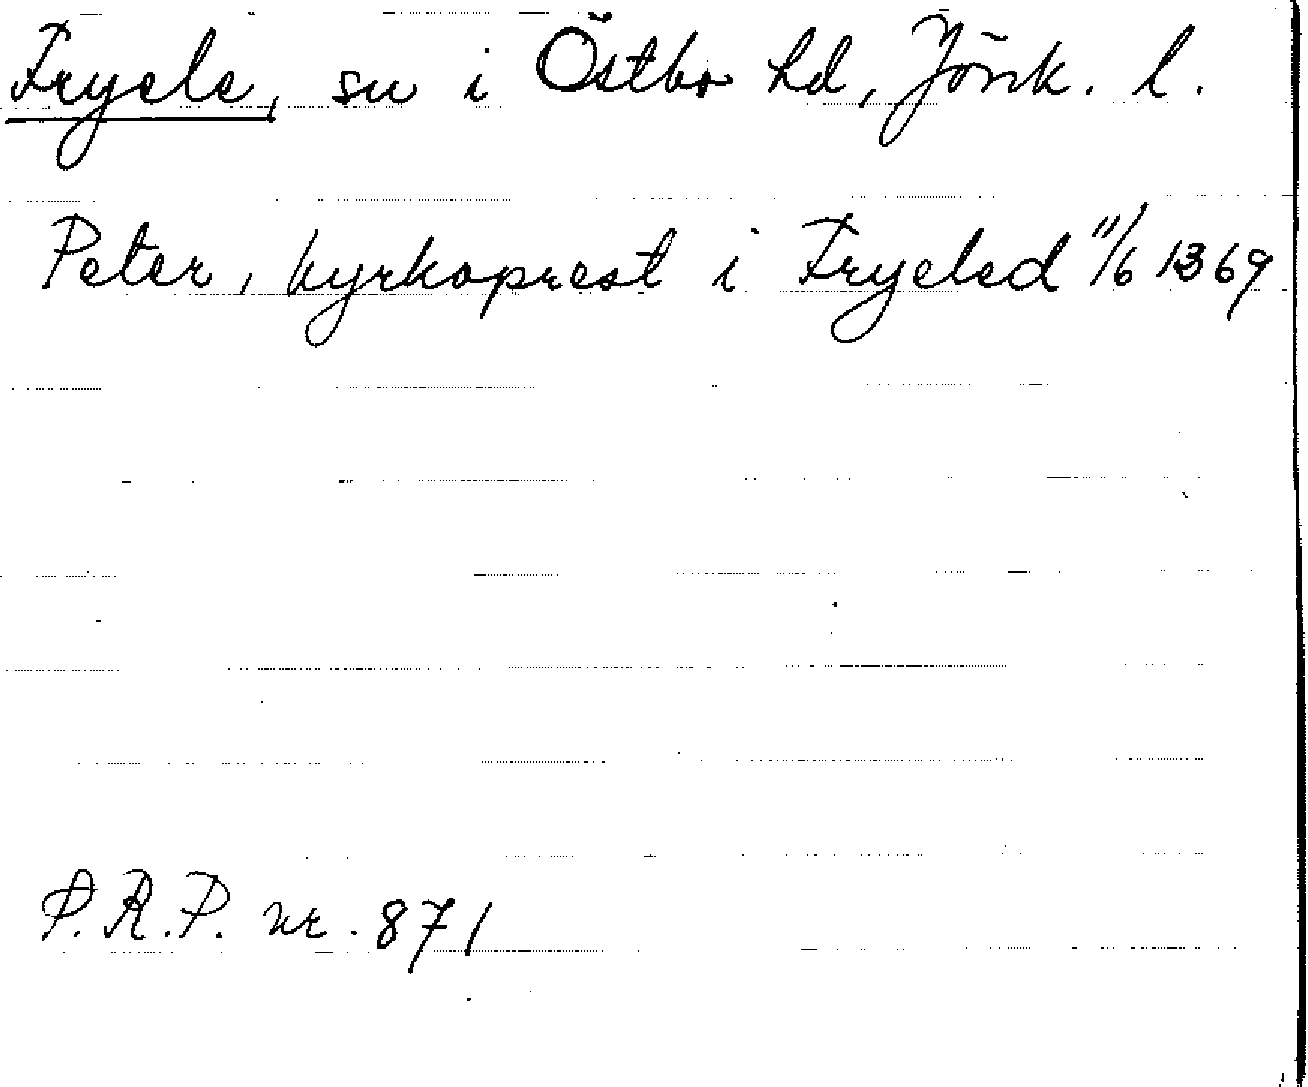 Fryele, sn i Östbo hd, Jönk. l.
Peter, kyrkoprest i Fryeled 11/6 1369
P.R.P. nr. 871